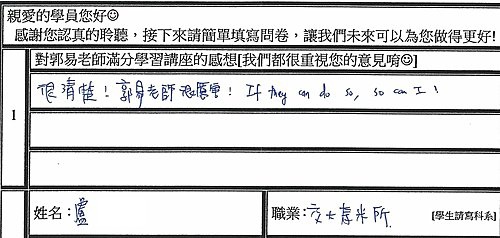 親愛的學員您好☺
感謝您認真的聆聽，接下來請簡單填寫問卷，讓我們未來可以為您做得更好!
對郭易老師滿分學習講座的感想[我們都很重視您的意見唷☺]
1
很清楚！郭易老師很厲害！If they can do so, so can I！
姓名：盧
職業：交大 所 [學生請寫科系]